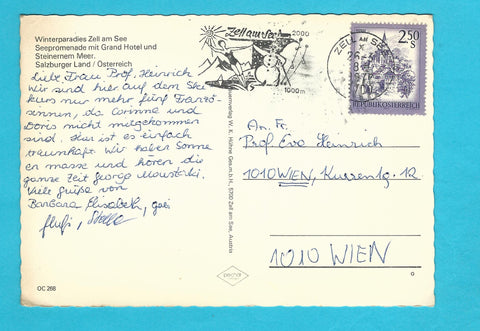 Winterparadies Zell am See
Seepromenade mit Grand Hotel und
Steinernem Meer.
Salzburger Land / Österreich
Liebe Frau Prof. Heinrich
Wir sind hier auf dem Ski
kurs nur mehr fünf Franzö-
sinnen, da Corinne und
Doris nicht mitgekommen
sind. Hier ist es einfach
traumhaft. Wir haben Sonne
en masse und hören die
ganze Zeit George Moustaki.
Viele Grüße von
Barbara Elisabeth,
Stella
OC 268
Zell am See
2000
1000m
ZELL AM SEE
2.50
S
REPUBLIK ÖSTERREICH
Verlag W. K. Hühne Ges.m.b.H., 5700 Zell am See, Austria
An Fr.
Prof. Eva Heinrich
1010 WIEN, Kurrentg. 12
1010 WIEN